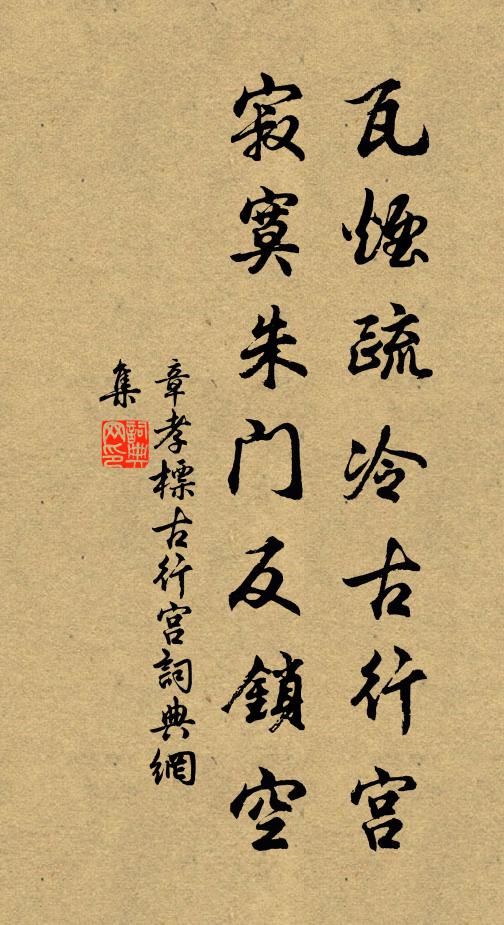 瓦煙疏冷古行宫
寂寞朱门反鎖空
章孝標古行宫詞典網
集
詞典网印